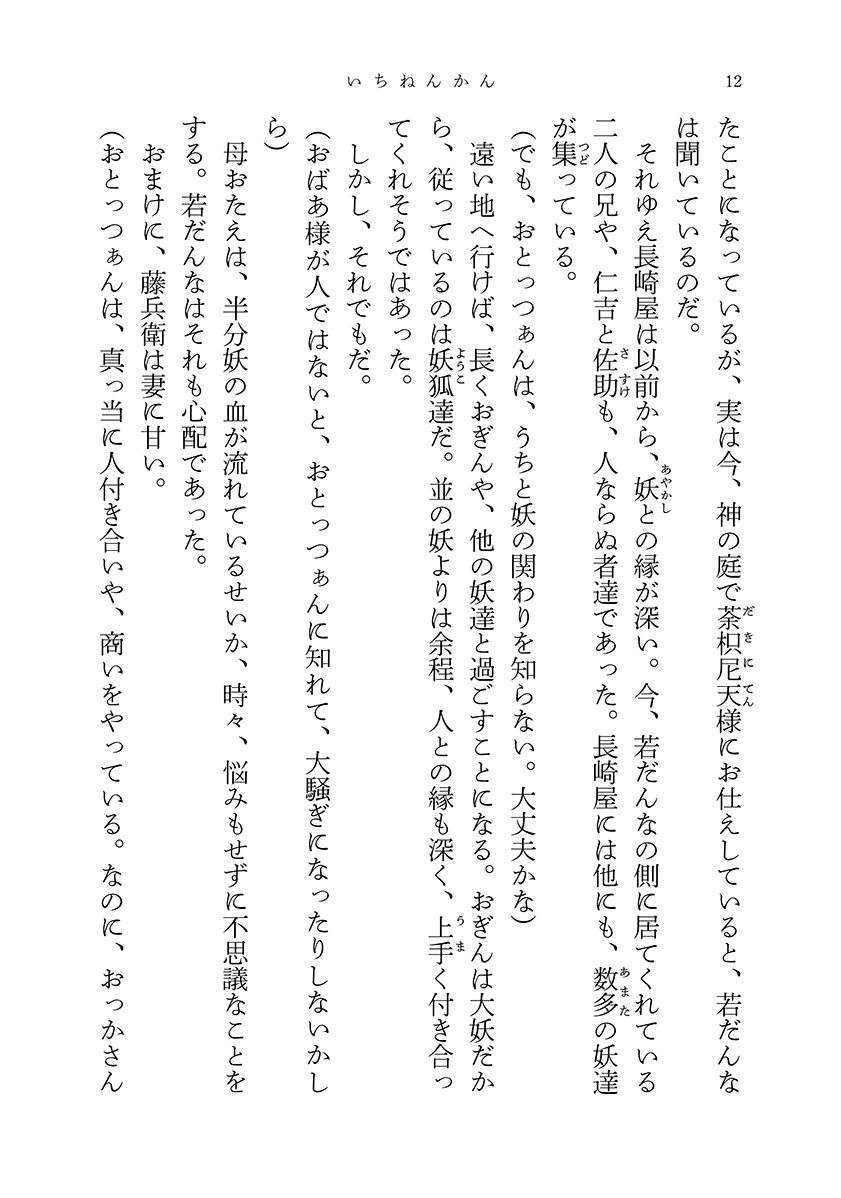 いちねんかん
12
たことになっているが、実は今、神の庭で荼枳尼天様にお仕えしていると、若だんな
は聞いているのだ。
それゆえ長崎屋は以前から、妖との縁が深い。今、若だんなの側に居てくれている
二人の兄や、仁吉と佐助も、人ならぬ者達であった。長崎屋には他にも、数多の妖達
が集っている。
(でも、おとっつぁんは、うちと妖の関わりを知らない。大丈夫かな)
遠い地へ行けば、長くおぎんや、他の妖達と過ごすことになる。おぎんは大妖だか
ら、従っているのは妖狐達だ。並の妖よりは余程、人との縁も深く、上手く付き合っ
てくれそうではあった。
しかし、それでもだ。
(おばあ様が人ではないと、おとっつぁんに知れて、大騒ぎになったりしないかし
ら)
母おたえは、半分妖の血が流れているせいか、時々、悩みもせずに不思議なことを
する。若だんなはそれも心配であった。
おまけに、藤兵衛は妻に甘い。
(おとっつぁんは、真っ当に人付き合いや、商いをやっている。なのに、おっかさん